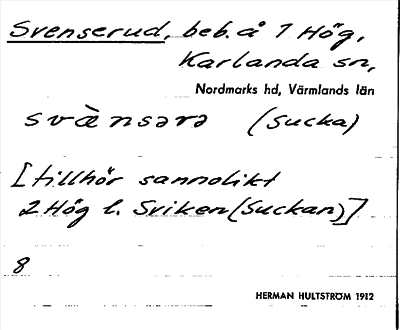 Svenserud, beb. å 1 Hög,
Karlanda sn,
Nordmarks hd, Värmlands län
svànsərə (sucka)
[tillhör sannolikt
2 Hög l. Sviken (Suckan)]
8
HERMAN HULTSTRÖM 1912